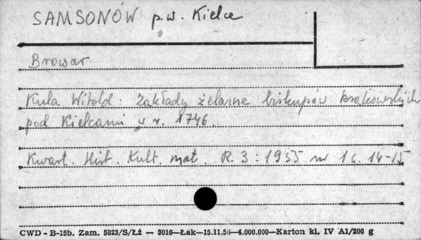 SAMSONÓW p.w. Kielce
Browar
Kula Witold: Zakłady żelazne biskupów krakowskich
pod Kielcami w r. 1746.
Kwart. Hist. Kult. mat. R. 3 : 1955 nr 1 s. 14-15
CWD - B-15b. Zam. 5823/S/Łż — 3016—Łak—15.11.56—4.000.000—Karton kl. IV A1/200 g